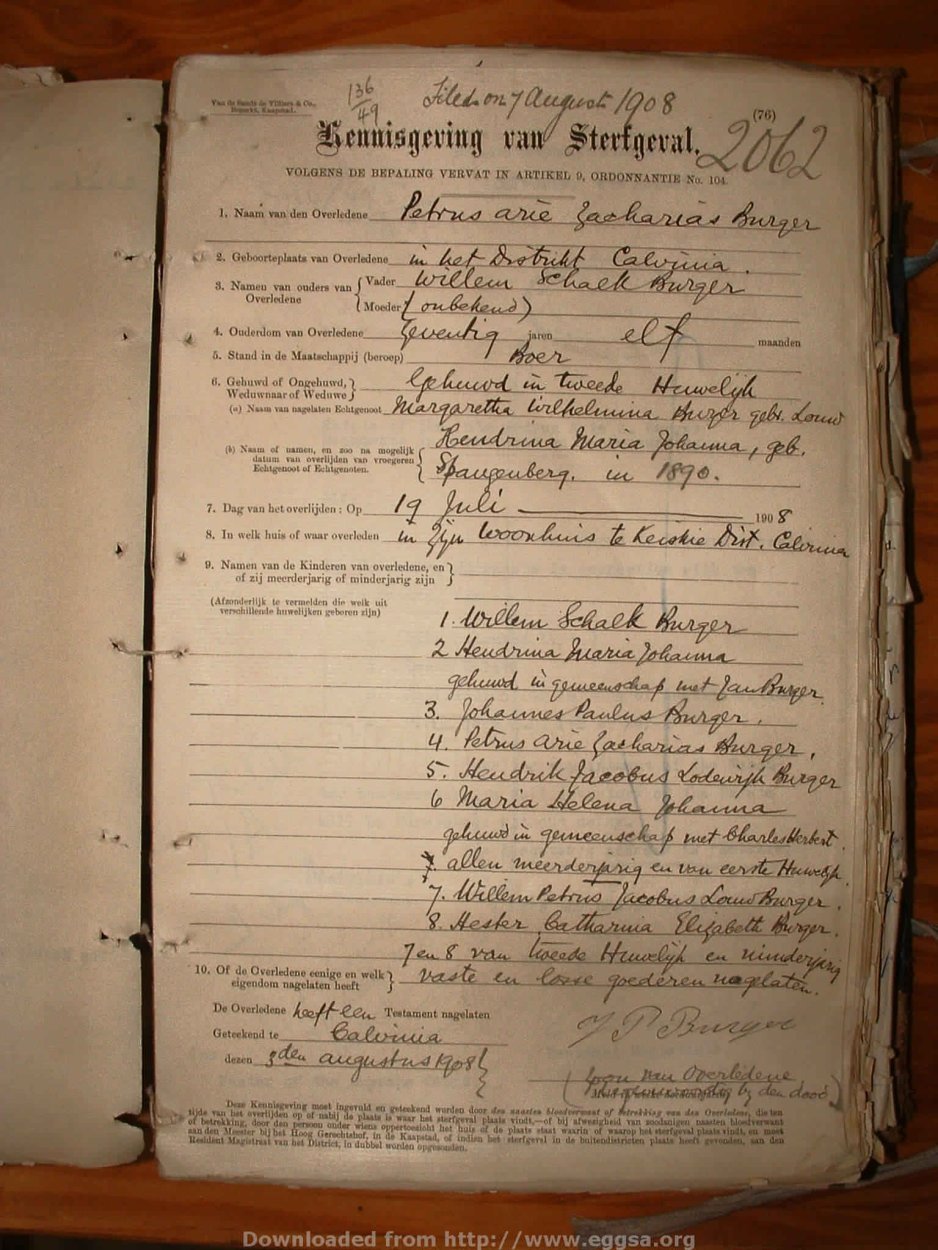 Van de Sandt de Villiers & Co., 136 Filed on 7 August 1908
Beperkt, Kaapstad. 49 (76)
Kennisgeving van Sterfgeval. 2062
VOLGENS DE BEPALING VERVAT IN ARTIKEL 9, ORDONNANTIE No. 104.
1. Naam van den Overledene Petrus Arie Zacharias Burger
2. Geboorteplaats van Overledene in het Distrikt Calvinia.
3. Namen van ouders van Overledene { Vader Willem Schalk Burger
Moeder (onbekend)
4. Ouderdom van Overledene Zeventig jaren elf maanden
5. Stand in de Maatschappij (beroep) Boer
6. Gehuwd of Ongehuwd, Weduwnaar of Weduwe } Gehuwd in tweede Huwelijk
(a) Naam van nagelaten Echtgenoot Margaretha Wilhelmina Burger gebr. Louw
(b) Naam of namen, en zoo na mogelijk Hendrina Maria Johanna, geb.
datum van overlijden van vroegeren
Echtgenoot of Echtgenoten. Spangenberg. in 1890.
7. Dag van het overlijden : Op 19 Juli 1908
8. In welk huis of waar overleden in zijn woonhuis te Keiskie Dist. Calvinia
9. Namen van de Kinderen van overledene, en
of zij meerderjarig of minderjarig zijn }
(Afzonderlijk te vermelden die welk uit
verschillende huwelijken geboren zijn)
1. Willem Schalk Burger
2 Hendrina Maria Johanna
gehuwd in gemeenschap met Jan Burger
3. Johannes Paulus Burger.
4. Petrus Arie Zacharias Burger.
5. Hendrik Jacobus Lodewijk Burger
6 Maria Helena Johanna
gehuwd in gemeenschap met Charles Herbert
allen meerderjarig en van eerste Huwelijk
7. Willem Petrus Jacobus Louw Burger.
8. Hester Catharina Elizabeth Burger.
7 en 8 van tweede Huwelijk en minderjarig
10. Of de Overledene eenige en welk
eigendom nagelaten heeft } vaste en losse goederen nagelaten.
De Overledene heeft een Testament nagelaten
Geteekend te Calvinia J P Burger
dezen 3den augustus 1908
Zoon van Overledene
(tegenwoordig by den dood)
Deze Kennisgeving moet ingevuld en geteekend worden door den naasten bloedverwant of betrekking van den Overledene, die ten
tijde van het overlijden op of nabij de plaats is waar het sterfgeval plaats vindt,—of bij afwezigheid van zoodanigen naasten bloedverwant
of betrekking, door den persoon onder wiens oppertoezicht het huis of de plaats staat waarin of waarop het sterfgeval plaats vindt, en moet
aan den Meester bij het Hoog Gerechtshof, in de Kaapstad, of indien het sterfgeval in de buitendistricten plaats heeft gevonden, aan den
Resident Magistraat van het District, in dubbel worden opgezonden.
Downloaded from http://www.eggsa.org